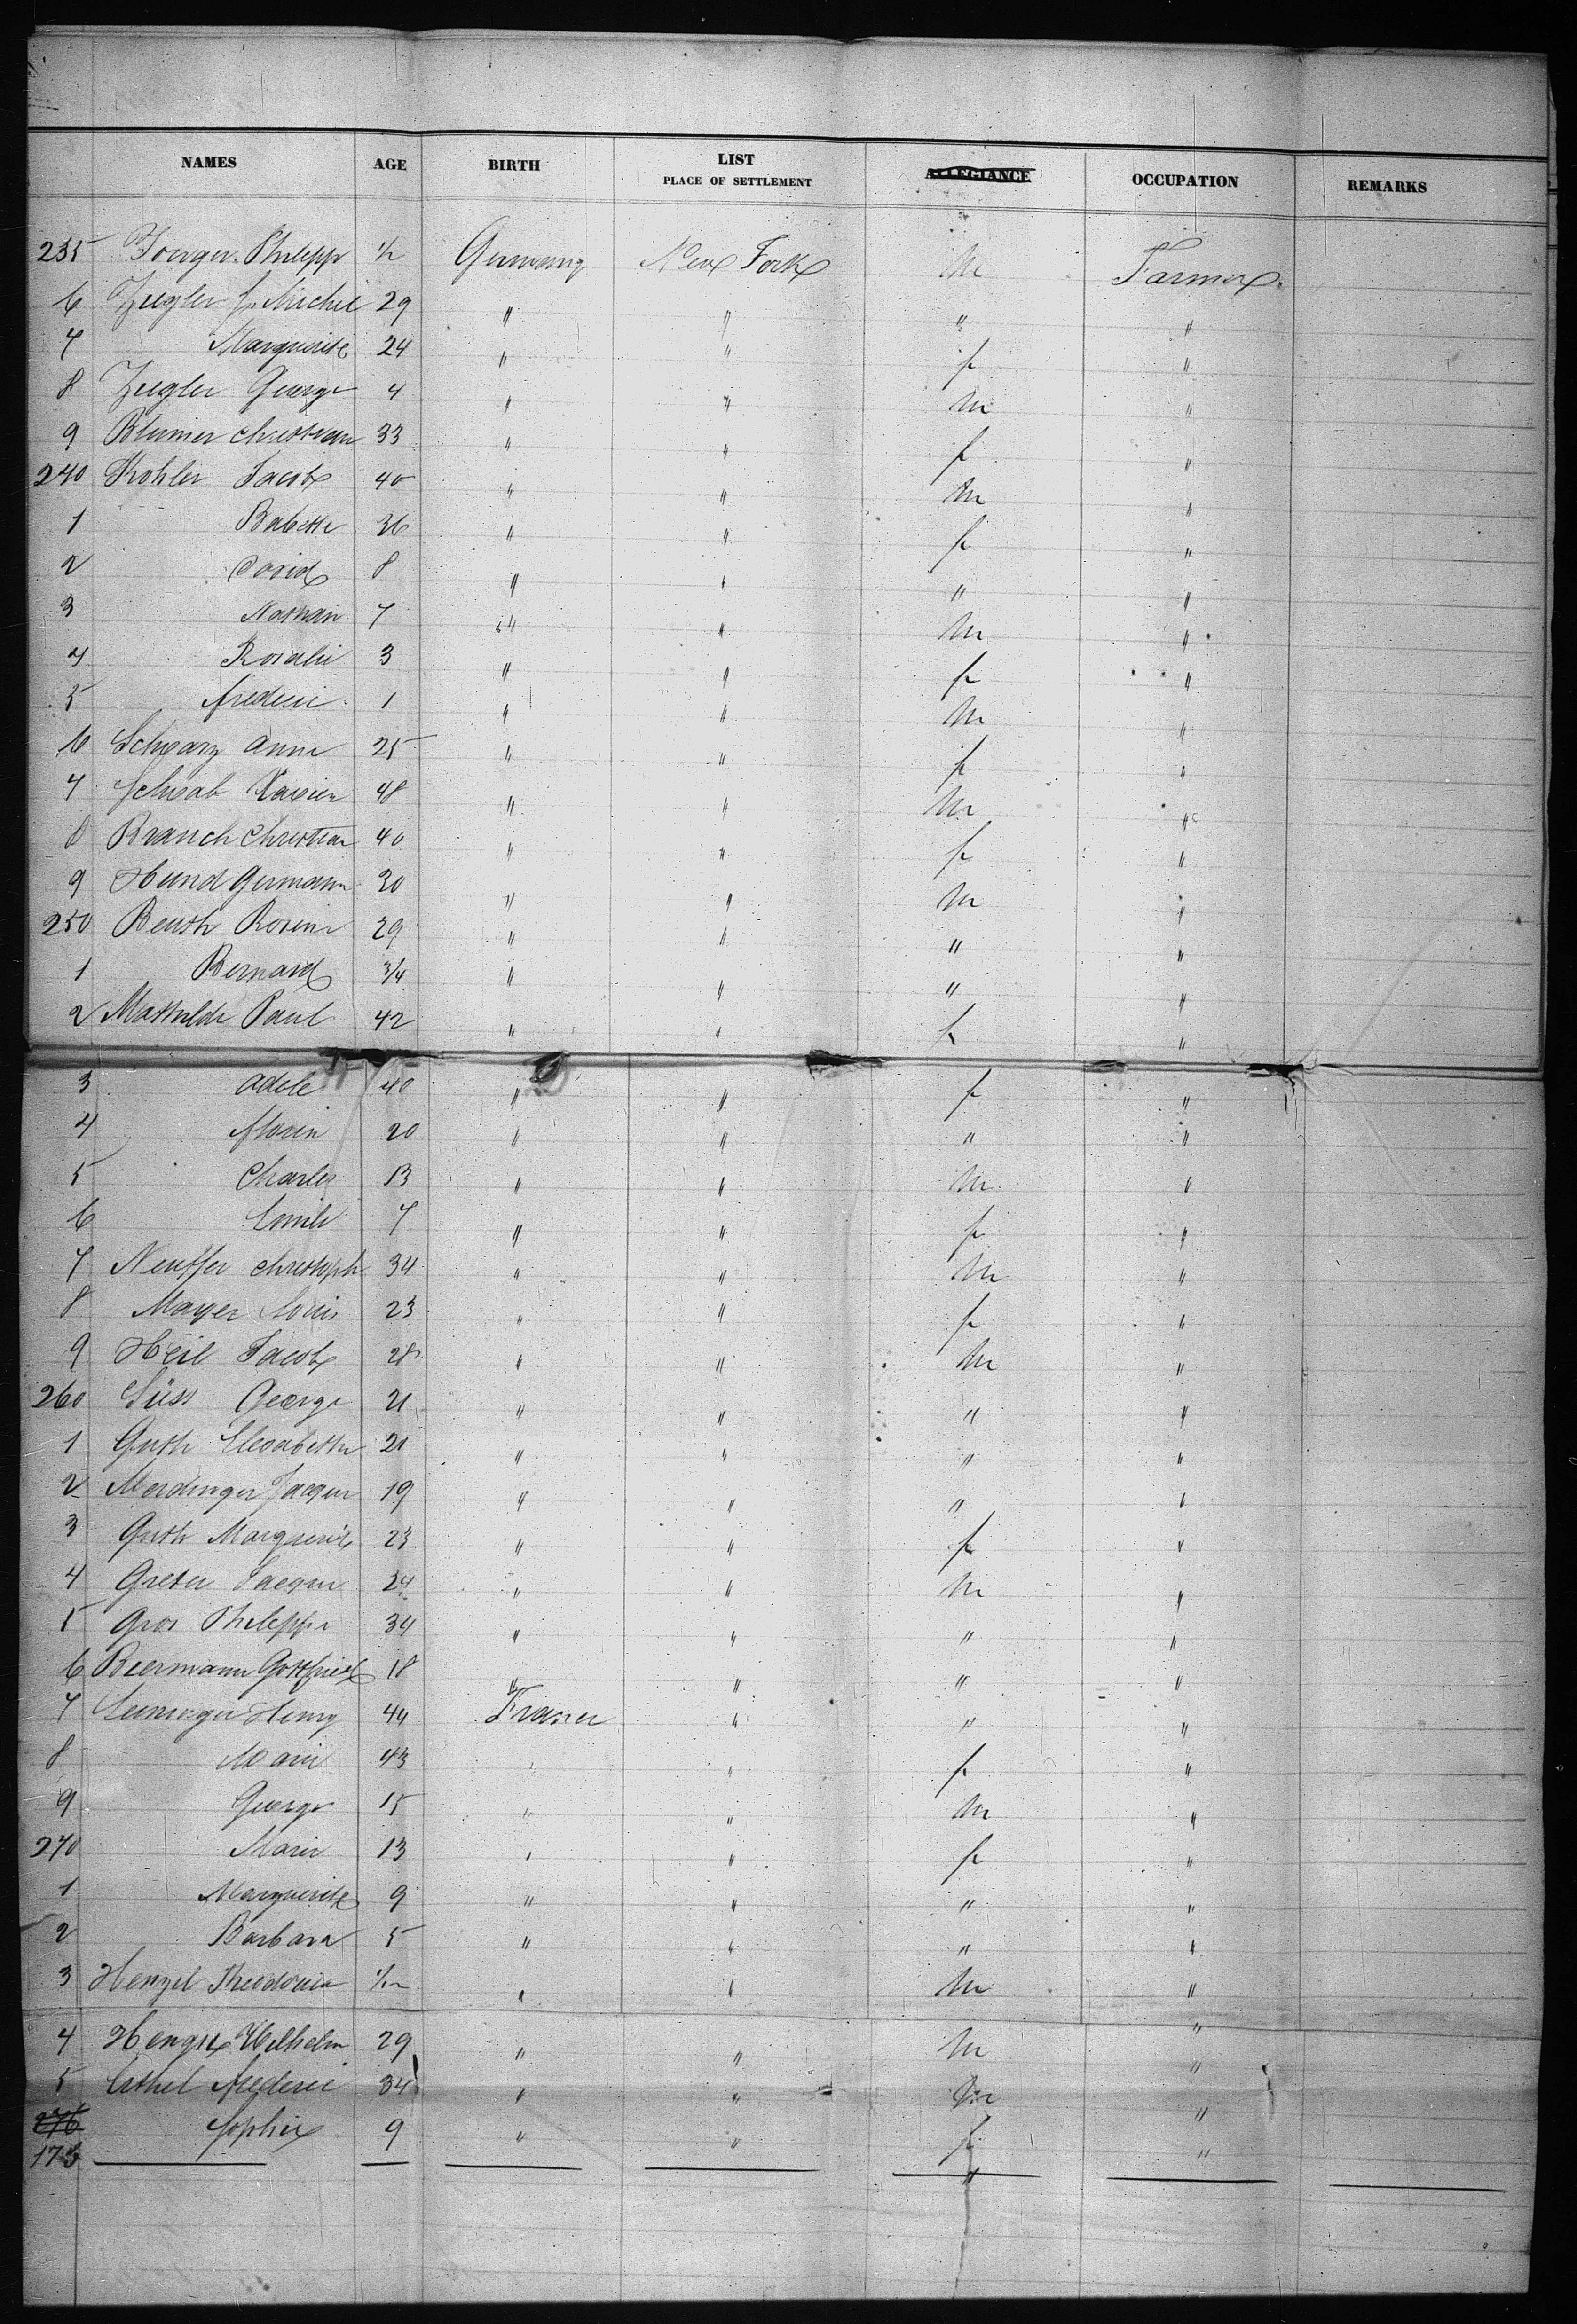 NAMES AGE BIRTH LIST PLACE OF SETTLEMENT ALLEGIANCE OCCUPATION REMARKS
235 Joerger Philipp 1/2 Germany New York M Farmer
6 Ziegler J. Michel 29 " " " "
7 Marguerite 24 " " f "
8 Ziegler George 4 " " M "
9 Blumer Christian 33 " " f "
240 Kohler Jacob 40 " " M "
1 Babette 36 " " f "
2 David 8 " " " "
3 Nathan 7 " " M "
4 Rosalie 3 " " f "
5 frederic 1 " " M "
6 Schwarz Anne 25 " " f "
7 Schwab Xavier 48 " " M "
8 Branch Christian 40 " " f "
9 Hund Germann 30 " " M "
250 Beuth Rosine 29 " " " "
1 Bernard 3/4 " " " "
2 Mathilde Paul 42 " " f "
3 Adele 40 " " f "
4 20 " " " "
5 Charles 13 " " M "
6 Emile 7 " " f "
7 Neuffer Christoph 34 " " M "
8 Mayer Louis 23 " " f "
9 Heil Jacob 28 " " M "
260 Süss George 21 " " " "
1 Guth Elisabeth 21 " " " "
2 Merdinger Jacques 19 " " " "
3 Guth Marguerite 23 " " f "
4 Greter Jacques 24 " " M "
5 Gros Philippe 34 " " " "
6 Biermann Gottfried 18 " " " "
7 Henry 44 France " " "
8 Marie 43 " " f "
9 George 15 " " M "
270 Marie 13 " " f "
1 Marguerite 9 " " " "
2 Barbara 5 " " " "
3 Henzel 1/12 " " M "
4 Wilhelm 29 " " M "
5 frederic 34 " " M "
276 Sophie 9 " " f "
173 "